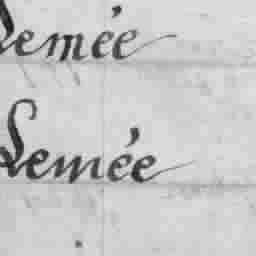 Lemée
Lemée